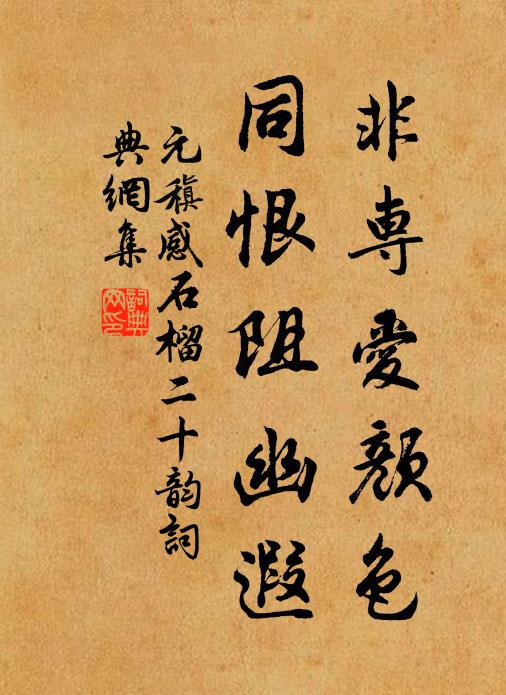 非專愛顏色
同恨阻幽遐
元稹感石榴二十韵詞
典網集
詞典网印